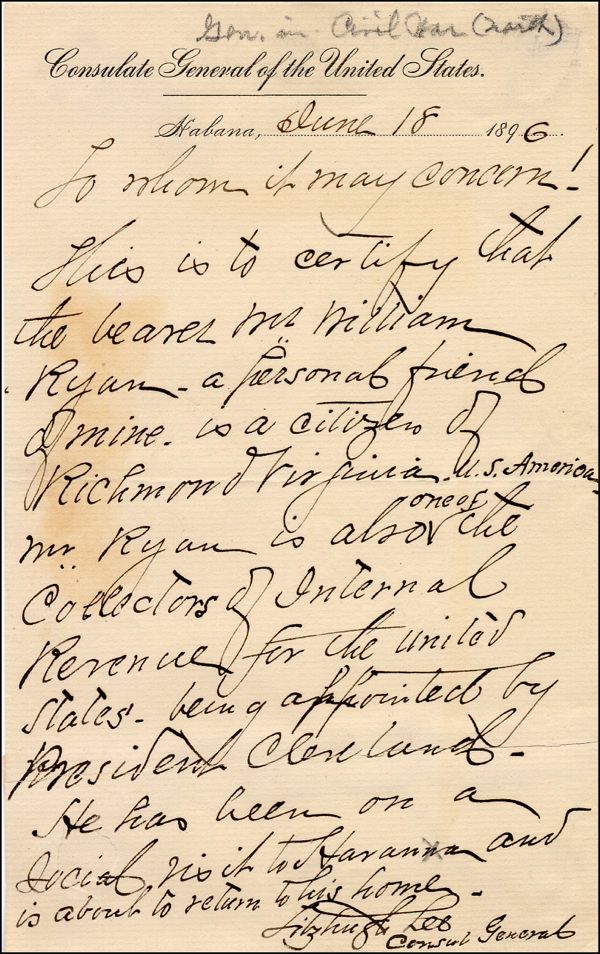 Gen. in Civil War (north)
Consulate General of the United States.
Habana, June 18 1896.
To whom it may concern!
This is to certify that
the bearer Mr William
Ryan - a personal friend
of mine. is a citizen of
Richmond Virginia. U.S. America.
one of
Mr Ryan is also the
Collectors of Internal
Revenue for the United
States - being appointed by
President Cleveland -
He has been on a
Social visit to Havanna and
is about to return to his home -
Fitzhugh Lee
Consul General